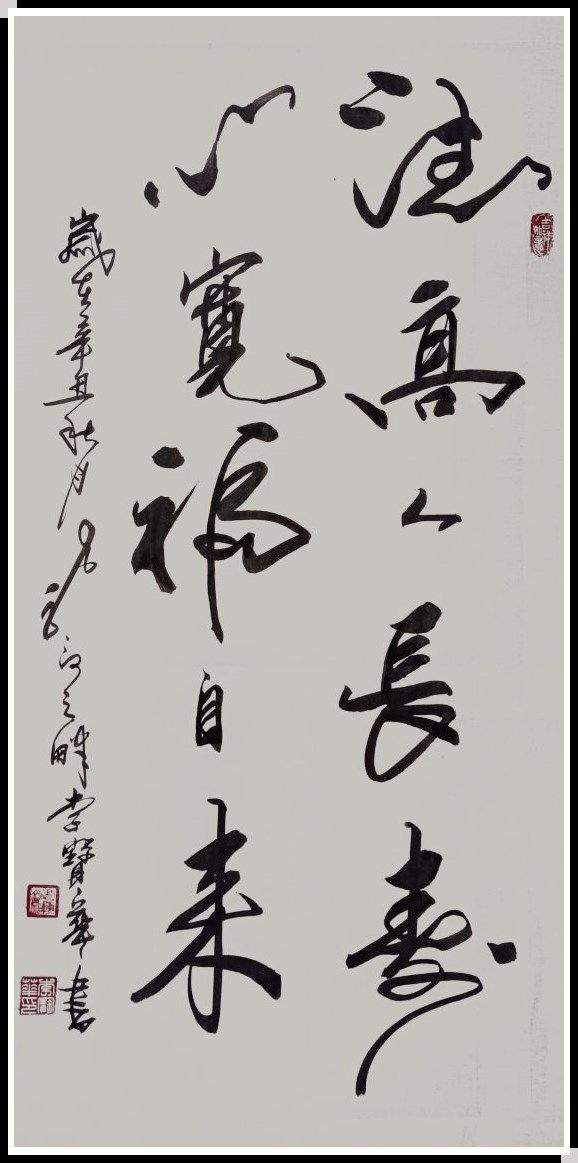 德高人長壽
心寬福自来
歲在辛丑秋月於河之畔李賢華書